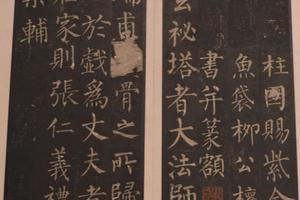 柱國賜紫金
魚袋柳公權
書并篆額
玄祕塔者大法師
甫骨之所歸
於戲爲丈夫者
家則張仁義禮
輔